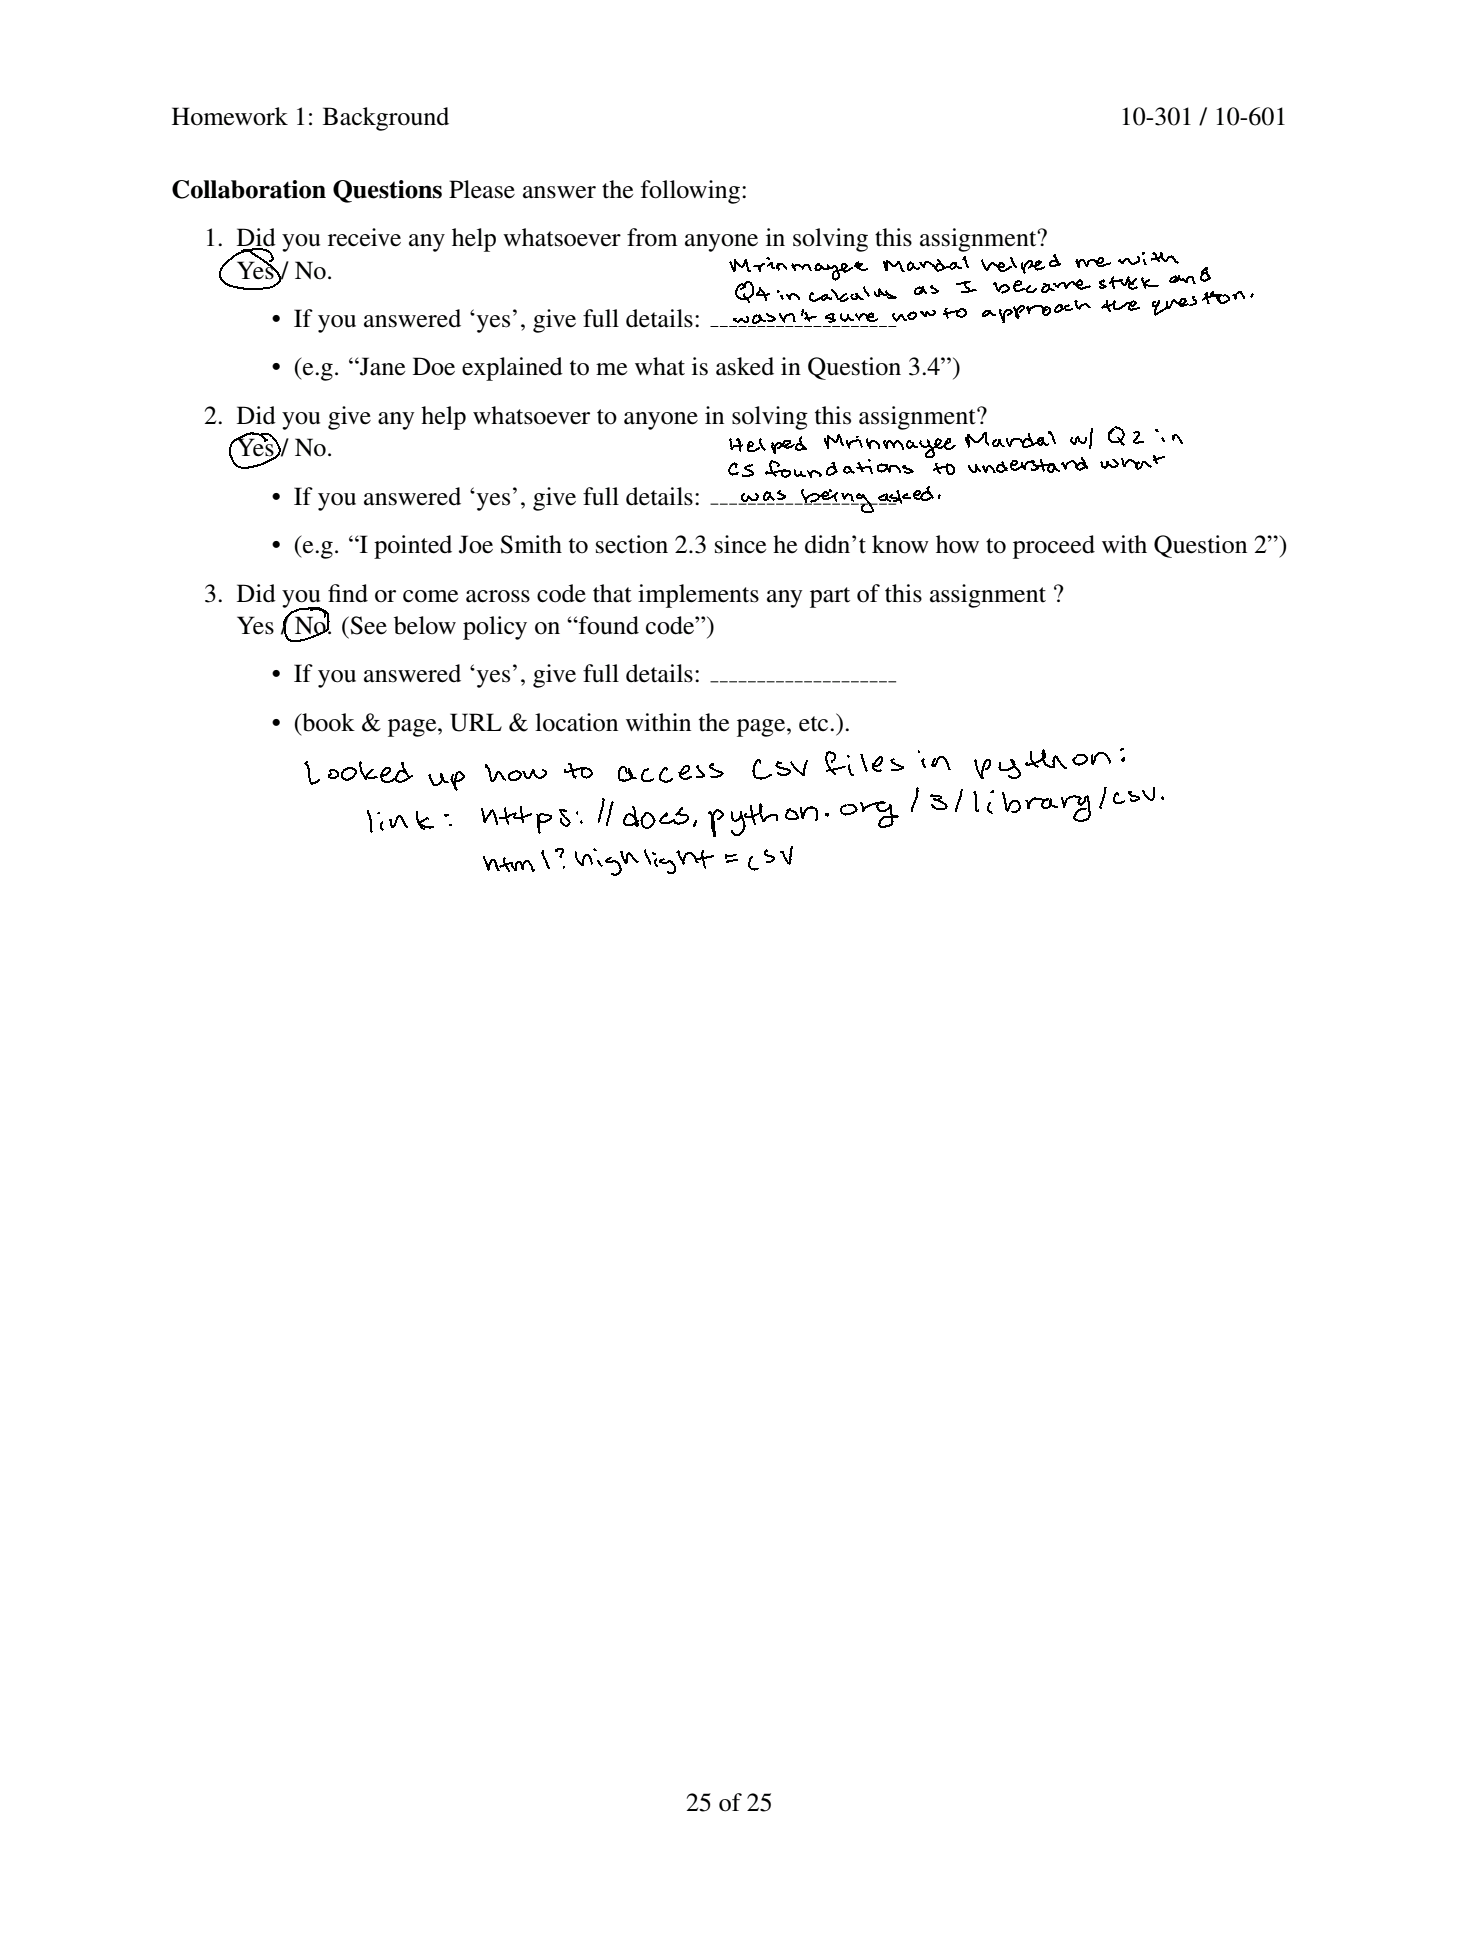 Homework 1: Background 10-301 / 10-601
Collaboration Questions Please answer the following:
1. Did you receive any help whatsoever from anyone in solving this assignment?
Yes / No.
Mrinmayee Mandal helped me with
Q4 in calculus as I became stuck and
• If you answered ‘yes’, give full details: wasn't sure how to approach the question.
• (e.g. “Jane Doe explained to me what is asked in Question 3.4”)
2. Did you give any help whatsoever to anyone in solving this assignment?
Yes / No.
Helped Mrinmayee Mandal w/ Q2 in
CS foundations to understand what
• If you answered ‘yes’, give full details: was being asked.
• (e.g. “I pointed Joe Smith to section 2.3 since he didn’t know how to proceed with Question 2”)
3. Did you find or come across code that implements any part of this assignment ?
Yes / No. (See below policy on “found code”)
• If you answered ‘yes’, give full details: ____________________
• (book & page, URL & location within the page, etc.).
Looked up how to access csv files in python:
link: https://docs.python.org/3/library/csv.
html?highlight=csv
25 of 25